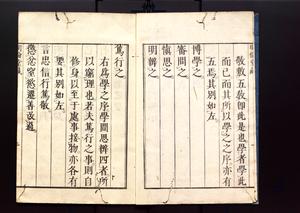 敬敷五敎即此是也學者學此
而已而其所以學之之序亦有
五焉其別如左
博學之
審問之
愼思之
明辨之
篤行之
右爲學之序學問思辨四者所
以窮理也若夫篤行之事則自
修身以至于處事接物亦各有
要其別如左
言忠信行篤敬
懲忿窒慾遷善改過